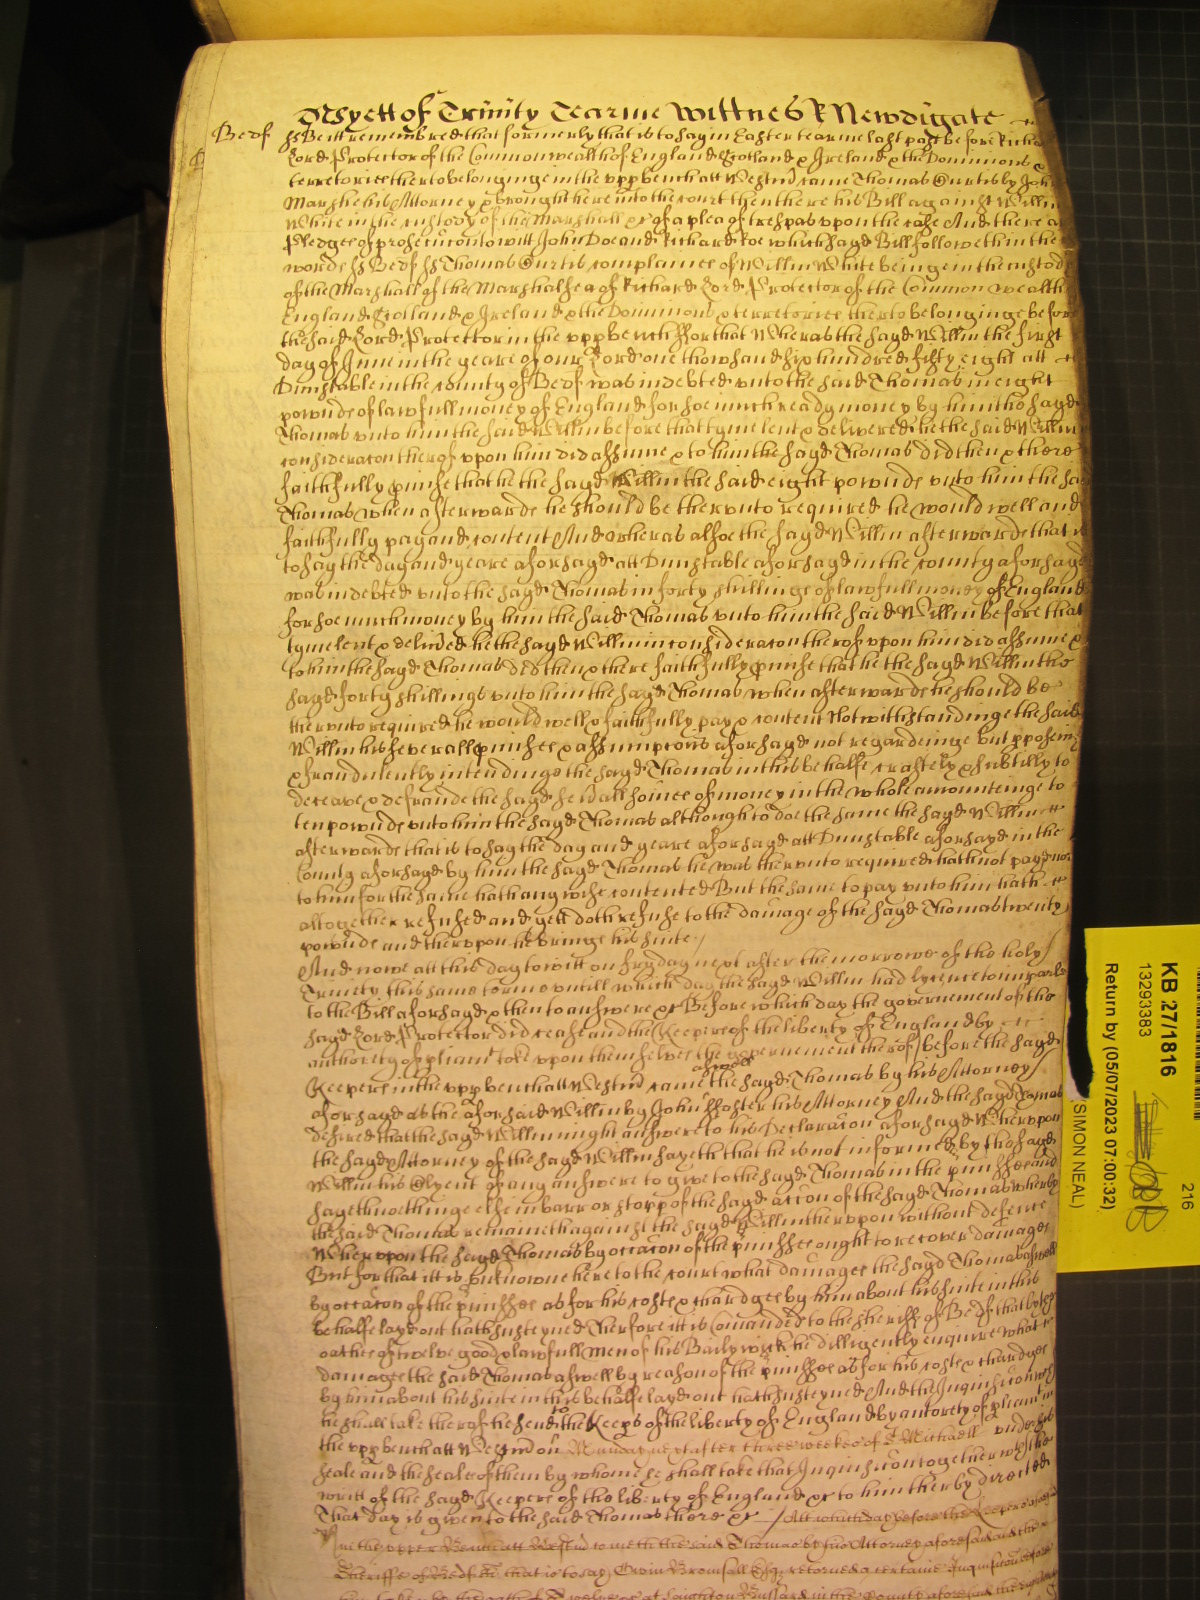 As yett of Trinity Tearme Wittnes R Newdigate
Bedf ss Be itt remembred that formerly that is to say in Easter tearme last past before Richa
Lord Protector of the Commonwealth of England Scotland & Ireland & the Dominions &
terretories therto belonginge in the vpp bench att Westm̃ came Thomas Curtis by John
Marshe his Attorney & brought here into the court then there his Bill against Willm
White in the custody of the Marshall &c of a plea of trespas vpon the case And there a
Pledges of prosecucon to witt John Doe and Richard Roe which sayd Bill followeth in the
words ss Bedf ss Thomas Curtis complaines of Willm White beinge in the custod
of the Marshall of the Marshalsea of Richard Lord Protector of the Common wealth
England Scotland & Ireland & the Dominions & terretories therto belonginge before
the said Lord Protector in the vpp bench ffor that Wheras the sayd Willm the first
day of June in the yeare of our Lord one thowsand six hundred fifty eight att
Dunstable in the county of Bedf was indebted vnto the said Thomas in eight
pownds of lawfull money of England for soe much ready money by him the sayd
Thomas vnto him the said Willm before that tyme lent & delivered he the said Willm
consideracon therof vpon him did assume & to him the sayd Thomas did then & there
faithfully pmise that he the sayd Willm the said eight pownds vnto him the sai
Thomas when afterwards he should be thervnto required he would well and
faithfully pay and content And wheras alsoe the sayd Willm afterwards that is
to say the day and yeare aforsayd att Dunstable aforsayd in the county aforsayd
was indebted vnto the sayd Thomas in forty shillings of lawfull money of England
for soe much money by him the said Thomas vnto him the said Willm before that
tyme lent & delivred he the sayd Willm in consideracon therof vpon him did assume &
to him the sayd Thomas did then & there faithfully pmise that he the sayd Willm the
sayd forty shillings vnto him the sayd Thomas when afterwards he should be
thervnto required he would well & faithfully pay & content Notwithstandinge the said
Willm his severall pmises & assumpcons aforsayd not regardeinge but pposeing
& fraudulently intendinge the sayd Thomas in this behalfe craftely & subtilly to
deceave & defraude the sayd sevall somes of money in the whole amounteinge to
ten pownds vnto him the sayd Thomas although to doe the same the sayd Willm
afterwards that is to say the day and yeare aforsayd att Dunstable aforsayd in the
County aforsayd by him the sayd Thomas he was thervnto required hath not payd nor
to him for the same hath any wise contented But the same to pay vnto him hath
altogether refused and yett doth refuse to the damage of the sayd Thomas twenty
pownds and thervpon he brings his suite /
And nowe att this day to witt on fryday next after the morrowe of the holy
Trinity this same terme vntill which day the sayd Willm had lycence to imparle
to the Bill aforsayd & then to answere &c Before which day the governement of the
sayd Lord Protector did cease and the Keepers of the liberty of England by
authority of pliam̃t toke vpon themselves the governement therof / before the sayd
Keepers in the vpp bench att Westm̃ came aswell the sayd Thomas by his Attorney
aforsayd as the aforsaid Willm by John ffoster his Attorney And the sayd Thomas
desired that the sayd Willm might answere to his Declaracon aforsayd Whervpon
the sayd Attorney of the sayd Willm sayeth that he is not informed by the sayd
Willm his Clyent of any answere to give to the sayd Thomas in the pmisses and
sayeth nothinge else in barr or stopp of the sayd accon of the sayd Thomas wherby
the said Thomas remaineth against the sayd Willm thervpon without defence
Whervpon the sayd Thomas by occacon of the pmisses ought to recover damages
But for that itt is vnknowne here to the court what damages the sayd Thomas aswell
by occacon of the pmisses as for his costs & chardges by him about his suite in this
behalfe layd out hath susteyned Therfore itt is Comanded to the sheriff of Bedf that by the
oathes of twelve good & lawfull men of his Bailywick he dilligently enquire what
damages the said Thomas aswell by reason of the pmisses as for his costs & chardges
by him about his suite in this behalfe layd out hath susteyned And the Inquisicon wch
he shall take therof he send to the Keeps of the liberty of England by autorety of pliam̃t in
the vpp bench att Westm̃ on Munday next after three weekes of St Michaell vnder his
seale and the seales of them by whome he shall take that Inquisicon together with the
writt of the sayd Keepers of the liberty of England &c to him therby directed
That day is given to the said Thomas there &c / Att which day before the Keepers aforesaid
in the vpper Bench att Westm̃ cometh the said Thomas by his Attorney aforesaid And the
Sheriffe of Bedf that is to say Esqr retorned a certaine Inquisicon before
him taken by the oath of Twelve at Leighton Bussard in the County aforesaid the
KB 27/1816
13293383
Return by (05/07/2023 07:00:32)
(SIMON NEAL)
216